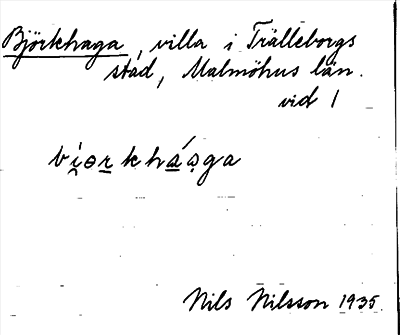 Björkhaga, villa i Trälleborgs
stad, Malmöhus län.
vid 1
bi̯ɵrkhága̩ga
Nils Nilsson 1935.